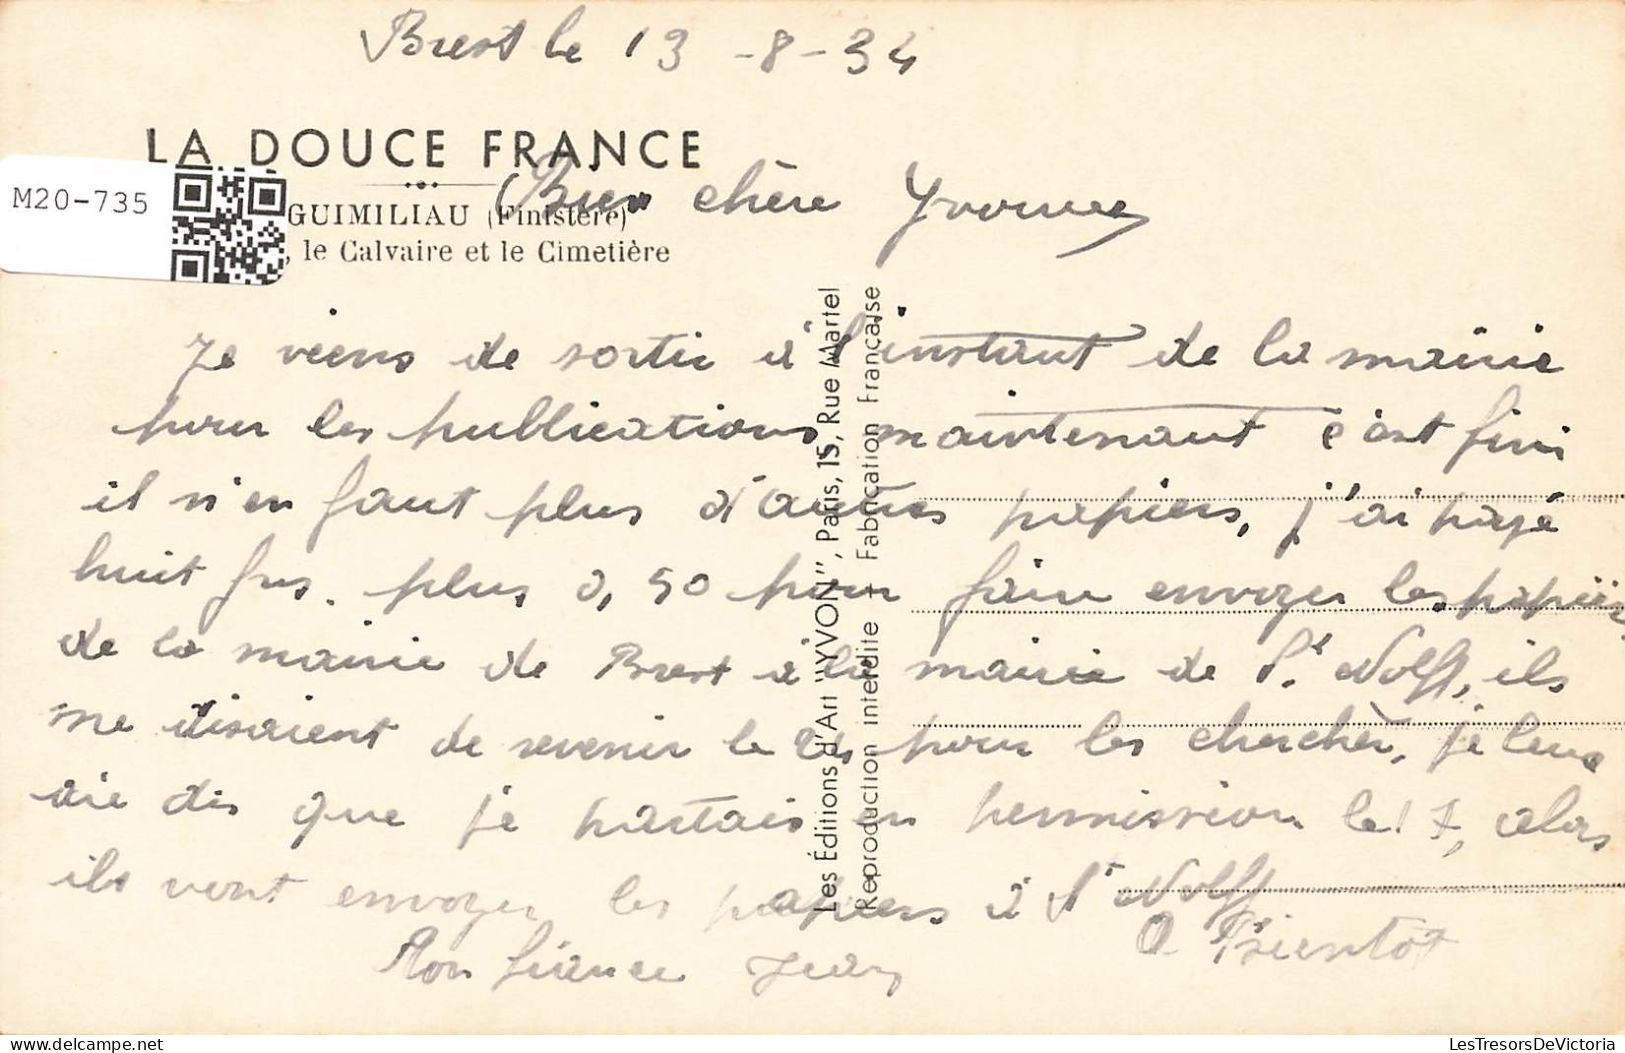 Brest le 13 -8-34
LA DOUCE FRANCE
M20-735
Bien chère Yvonne
GUIMILIAU (Finistère)
, le Calvaire et le Cimetière
Je viens de sortir à l'instant de la mairie
pour les publications maintenant c'est fini
il n'en faut plus d'autres papiers, j'ai payé
huit frs. plus 0,50 pour faire envoyer les papiers
de la mairie de Brest à la mairie de St. Nolff, ils
me disaient de revenir le 24 pour les cherchèr, je leur
aie dis que je partais en permission le 17, alors
ils vont envoyer les papiers à St Nolff
A Bientôt
Ton fiance Jean
Les Éditions d'Art "YVON", Paris, 15, Rue Martel
Reproduction interdite - Fabrication Française
delcampe.net
LesTresorsDeVictoria